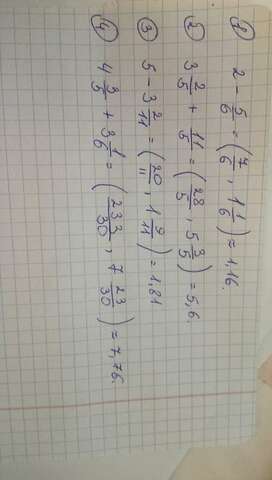 ① 2 - 5/6 = (7/6, 1 1/6) = 1,16.
② 3 2/5 + 11/5 = (28/5, 5 3/5) = 5,6.
③ 5 - 3 2/11 = (20/11, 1 9/11) = 1,81
④ 4 3/5 + 3 1/6 = (233/30, 7 23/30) = 7,76.